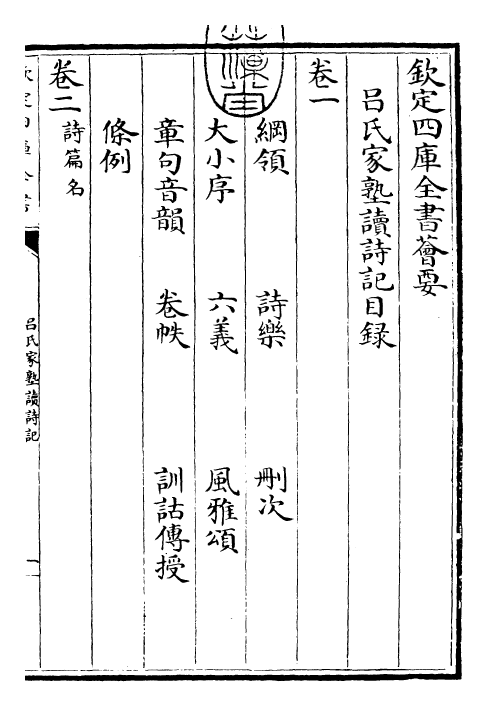 欽定四庫全書薈要
吕氏家塾讀詩記目録
卷一
綱領　詩樂　刪次
大小序　六義　風雅頌
章句音韻　卷帙　訓詁傳授
條例
卷二 詩篇名
吕氏家塾讀詩記
一